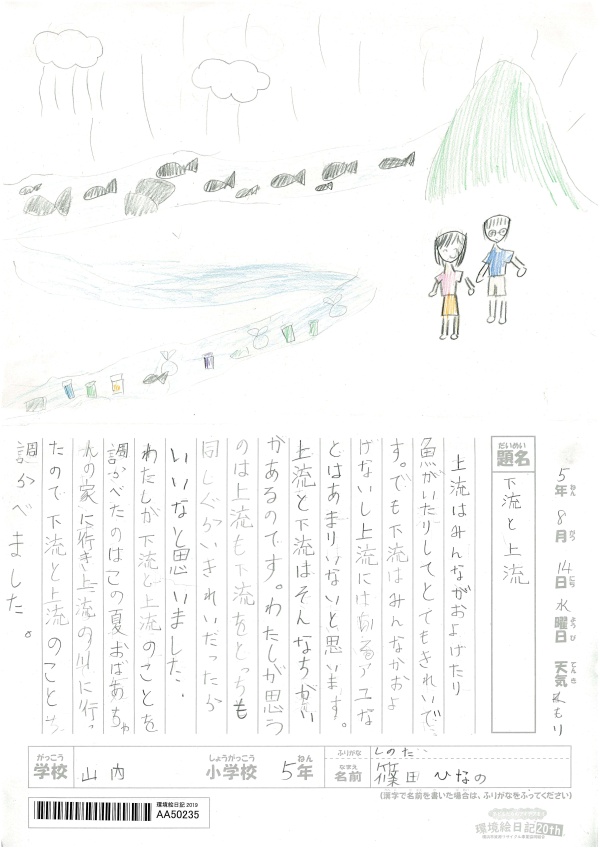 5年 8月 14日 水曜日 天気 くもり
ねん がつ にち ようび てんき
だいめい
題名
下流と上流
上流はみんながおよげたり
魚がいたりしてとてもきれいで
す。でも下流はみんなかおよ
げないし上流にはいるアユな
とはあまりいないと思います。
上流と下流はそんなちがい
かあるのです。わたしが思う
のは上流も下流をとっちも
同しぐらいきれいだったら
いいなと思いました。
わたしか下流と上流のことを
調かべたのはこの夏おばあちゃ
んの家に行き上流の川に行っ
たので下流と上流のことも
調かべました。
がっこう
学校
山内
しょうがっこう
小学校
5年
ねん
ふりがな
しのだ
なまえ
名前
篠田 ひなの
(漢字で名前を書いた場合は、ふりがなをふってください)
環境絵日記 2019
AA50235
環境絵日記 20th